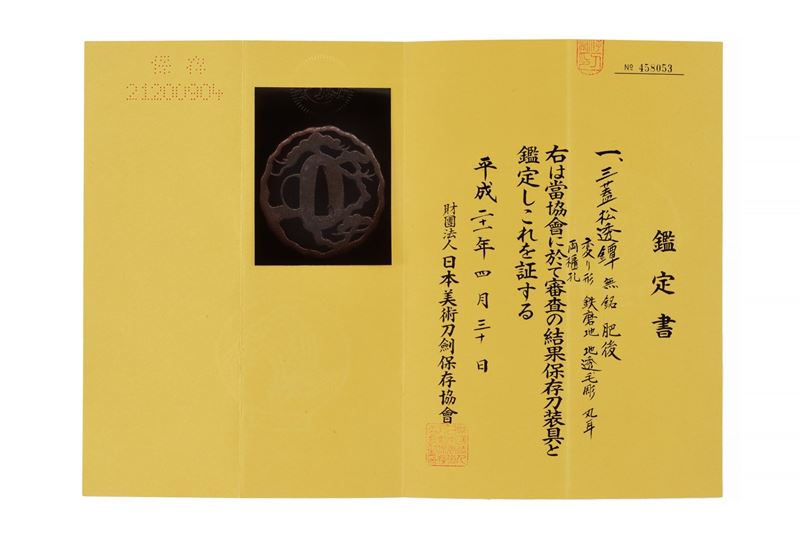 保存
21200904
№ 458053
鑑定書
一、三蓋松透鐔 無銘 肥後
変り形 鉄磨地 地透毛彫 丸耳
両櫃孔
右は當協會に於て審査の結果保存刀装具と
鑑定しこれを証する
平成二十一年四月三十日
財團法人日本美術刀劍保存協會